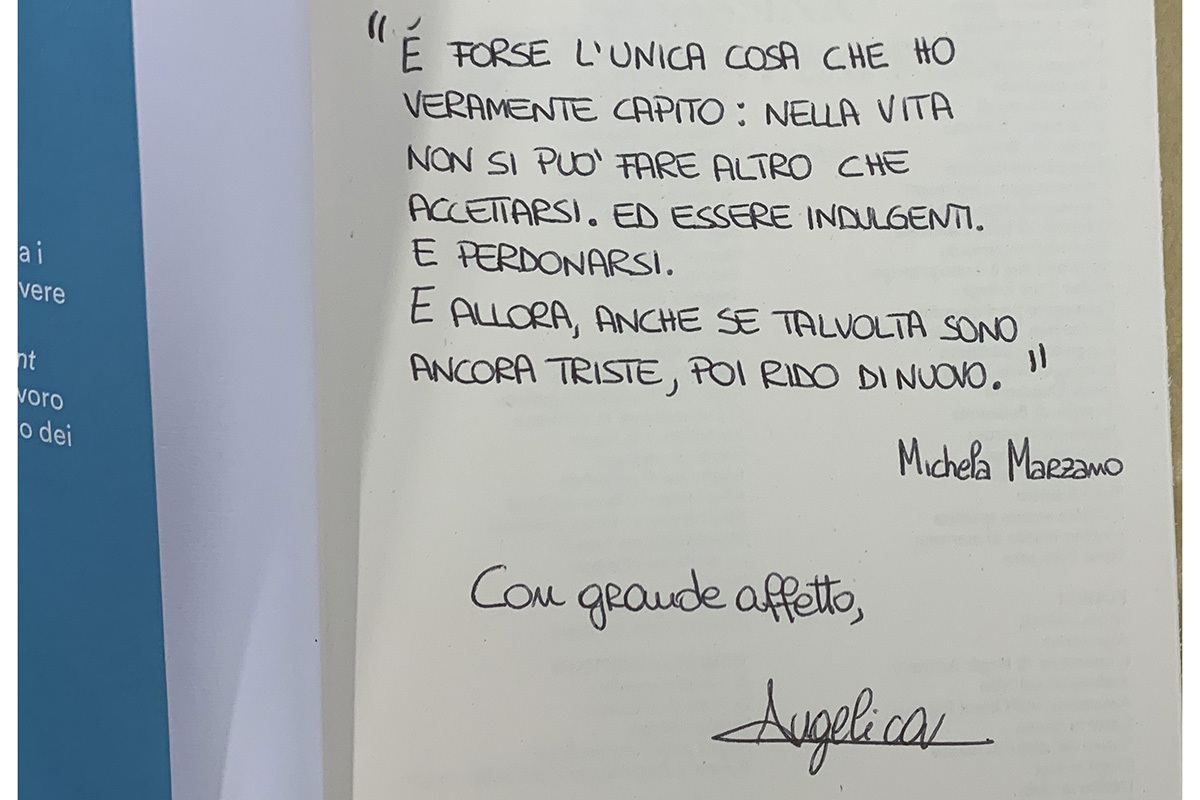 a i
vere
nt
voro
o dei
" É FORSE L'UNICA COSA CHE HO
VERAMENTE CAPITO: NELLA VITA
NON SI PUO' FARE ALTRO CHE
ACCETTARSI. ED ESSERE INDULGENTI.
E PERDONARSI.
E ALLORA, ANCHE SE TALVOLTA SONO
ANCORA TRISTE, POI RIDO DI NUOVO. "
Michela Marzano
Con grande affetto,
Angelica